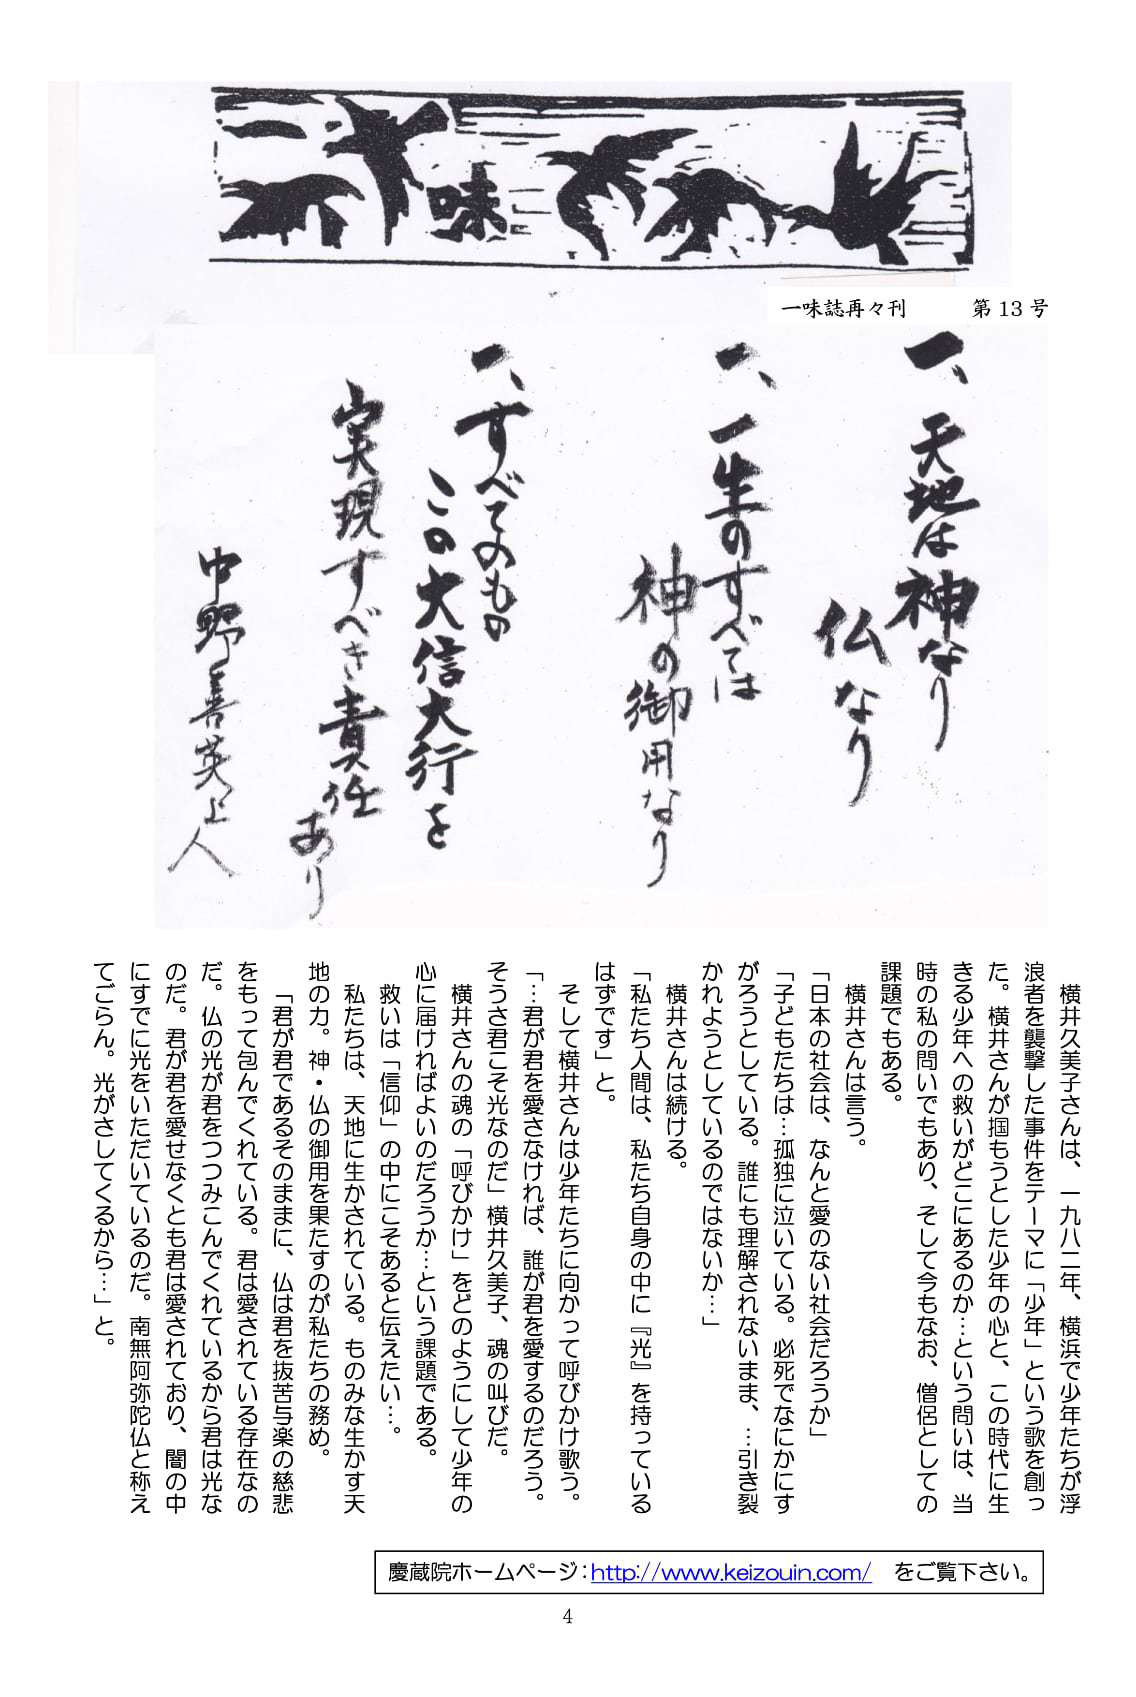 一味
一味誌再々刊　第13号
一、天地は神なり
仏なり
一、一生のすべては
神の御用なり
一、すべてのもの
この大信大行を
実現すべき責任
あり
中野善英上人
横井久美子さんは、一九八二年、横浜で少年たちが浮
浪者を襲撃した事件をテーマに「少年」という歌を創っ
た。横井さんが掴もうとした少年の心と、この時代に生
きる少年への救いがどこにあるのか…という問いは、当
時の私の問いでもあり、そして今もなお、僧侶としての
課題でもある。
横井さんは言う。
「日本の社会は、なんと愛のない社会だろうか」
「子どもたちは…孤独に泣いている。必死でなにかにす
がろうとしている。誰にも理解されないまま、…引き裂
かれようとしているのではないか…」
横井さんは続ける。
「私たち人間は、私たち自身の中に『光』を持っている
はずです」と。
そして横井さんは少年たちに向かって呼びかけ歌う。
「…君が君を愛さなければ、誰が君を愛するのだろう。
そうさ君こそ光なのだ」横井久美子、魂の叫びだ。
横井さんの魂の「呼びかけ」をどのようにして少年の
心に届ければよいのだろうか…という課題である。
救いは「信仰」の中にこそあると伝えたい…。
私たちは、天地に生かされている。ものみな生かす天
地の力。神・仏の御用を果たすのが私たちの務め。
「君が君であるそのままに、仏は君を抜苦与楽の慈悲
をもって包んでくれている。君は愛されている存在なの
だ。仏の光が君をつつみこんでくれているから君は光な
のだ。君が君を愛せなくとも君は愛されており、闇の中
にすでに光をいただいているのだ。南無阿弥陀仏と称え
てごらん。光がさしてくるから…」と。
慶蔵院ホームページ：http://www.keizouin.com/　をご覧下さい。
4